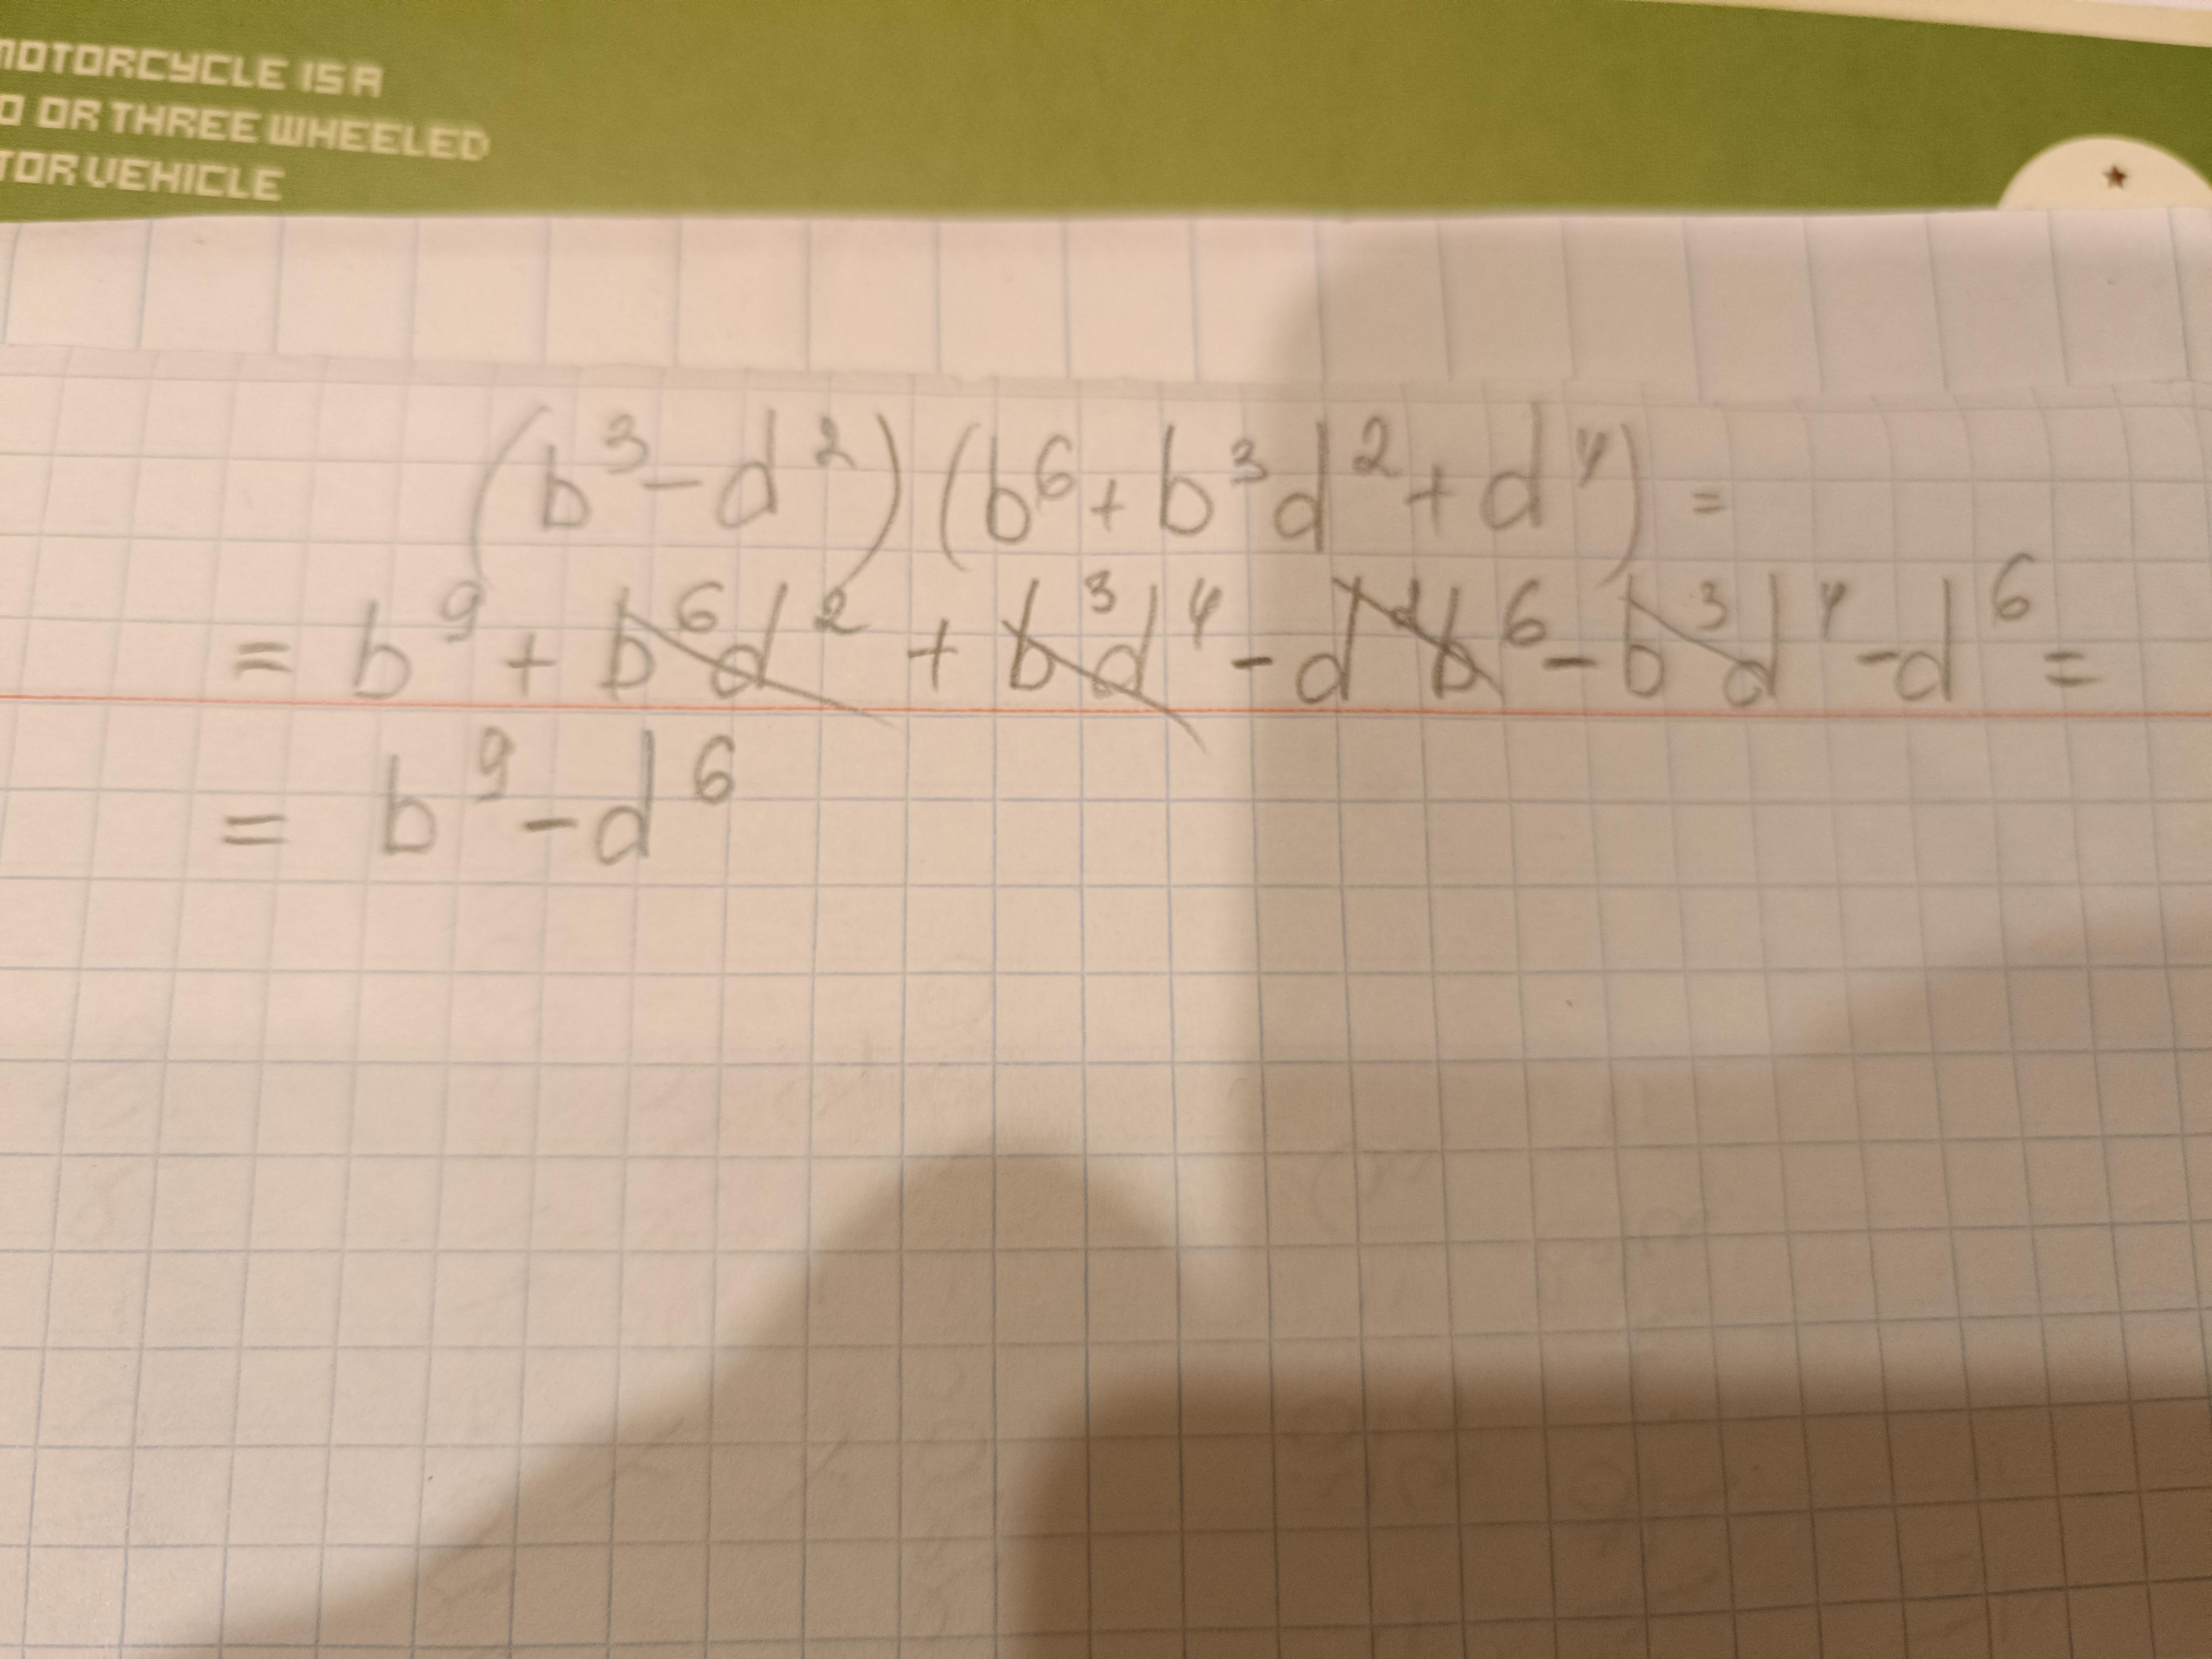 MOTORCYCLE IS A
O OR THREE WHEELED
TOR VEHICLE
(b³-d²)(b⁶+b³d²+d⁴)=
=b⁹+b⁶d²+b³d⁴-d²b⁶-b³d⁴-d⁶=
=b⁹-d⁶